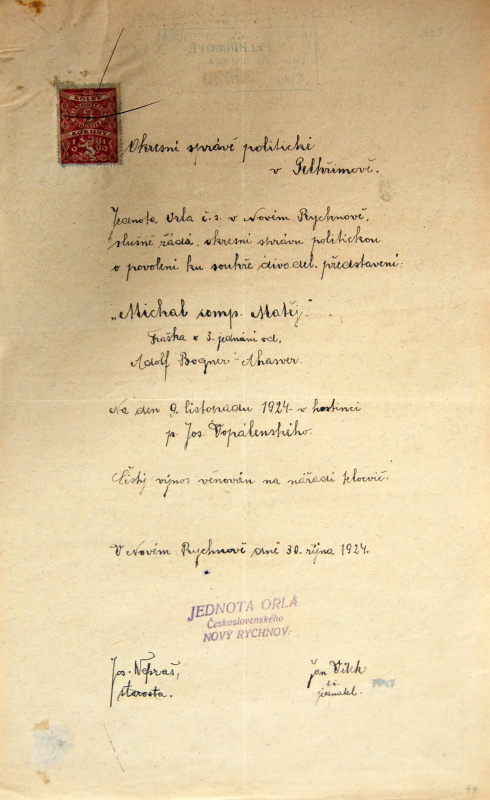 ČS
KOLEK
KORUNY
Okresní správě politické
v Pelhřimově.
Jednota Orla č. s. v Novém Rychnově,
slušně žádá, okresní správu politickou
o povolení ku souhře divadel. představení:
"Michal comp. Matěj."
Fraška o 3. jednání od,
Adolf Bogner-Ahasver.
Na den 9. listopadu 1924 v hostinci
p. Jos. Vopálenského.
Čistý výnos věnován na nářadí tělocvič.
V Novém Rychnově dne 30. října 1924.
JEDNOTA ORLA
Československého
NOVÝ RYCHNOV
Jos. Nepraš,
starosta.
Jan Vlk
jednatel.